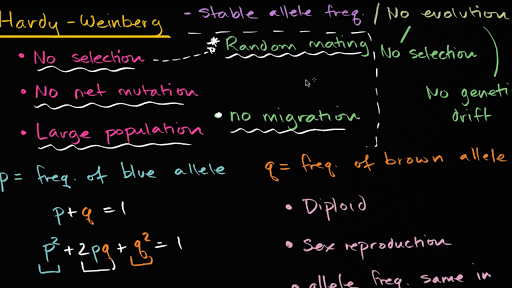 Hardy-Weinberg
- stable allele freq. / No evolution
• No selection
* Random mating
No selection
• No net mutation
No geneti
drift
• Large population
• no migration
p = freq. of blue allele
q = freq. of brown allele
p+q=1
• Diploid
p²+2pq+q²=1
• Sex reproduction
• allele freq. same in